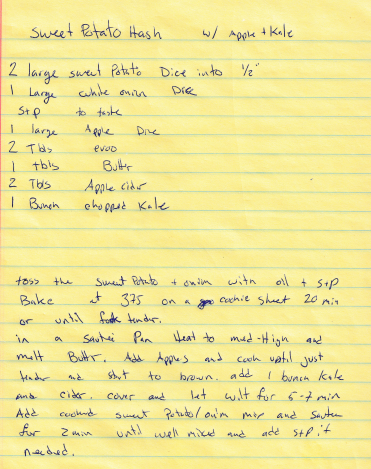 Sweet Potato Hash w/ Apple + Kale
2 large sweet Potato Dice into 1/2"
1 Large white onion Dice
S+p to taste
1 large Apple Dice
2 Tbls evoo
1 tbls Buttr
2 Tbls Apple cidr
1 Bunch chopped Kale
toss the Sweet Potato + onion with oil + S+P
Bake at 375 on a cookie sheet 20 min
or until tender.
in a sautei Pan Heat to med-High and
melt Buttr. Add Apples and cook until just
tender and start to brown. add 1 bunch Kale
and cidr. cover and let wilt for 5-7 min
Add cooked sweet Potato/onion mix and sautee
for 2 min until well mixed and add S+P if
needed.